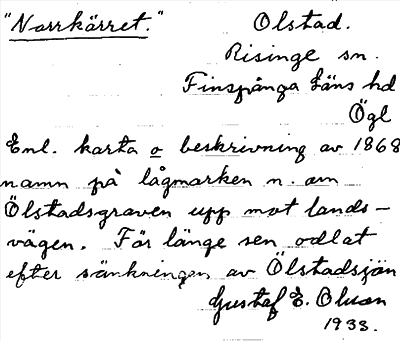 "Norrkärret."
Ölstad.
Risinge sn.
Finspånga läns hd
Ögl
Enl. karta o beskrivning av 1868
namn på lågmarken n. om
Ölstadsgraven upp mot lands-
vägen. För länge sen odlat
efter sänkningen av Ölstadsjön
Gustaf E. Olson
1933.